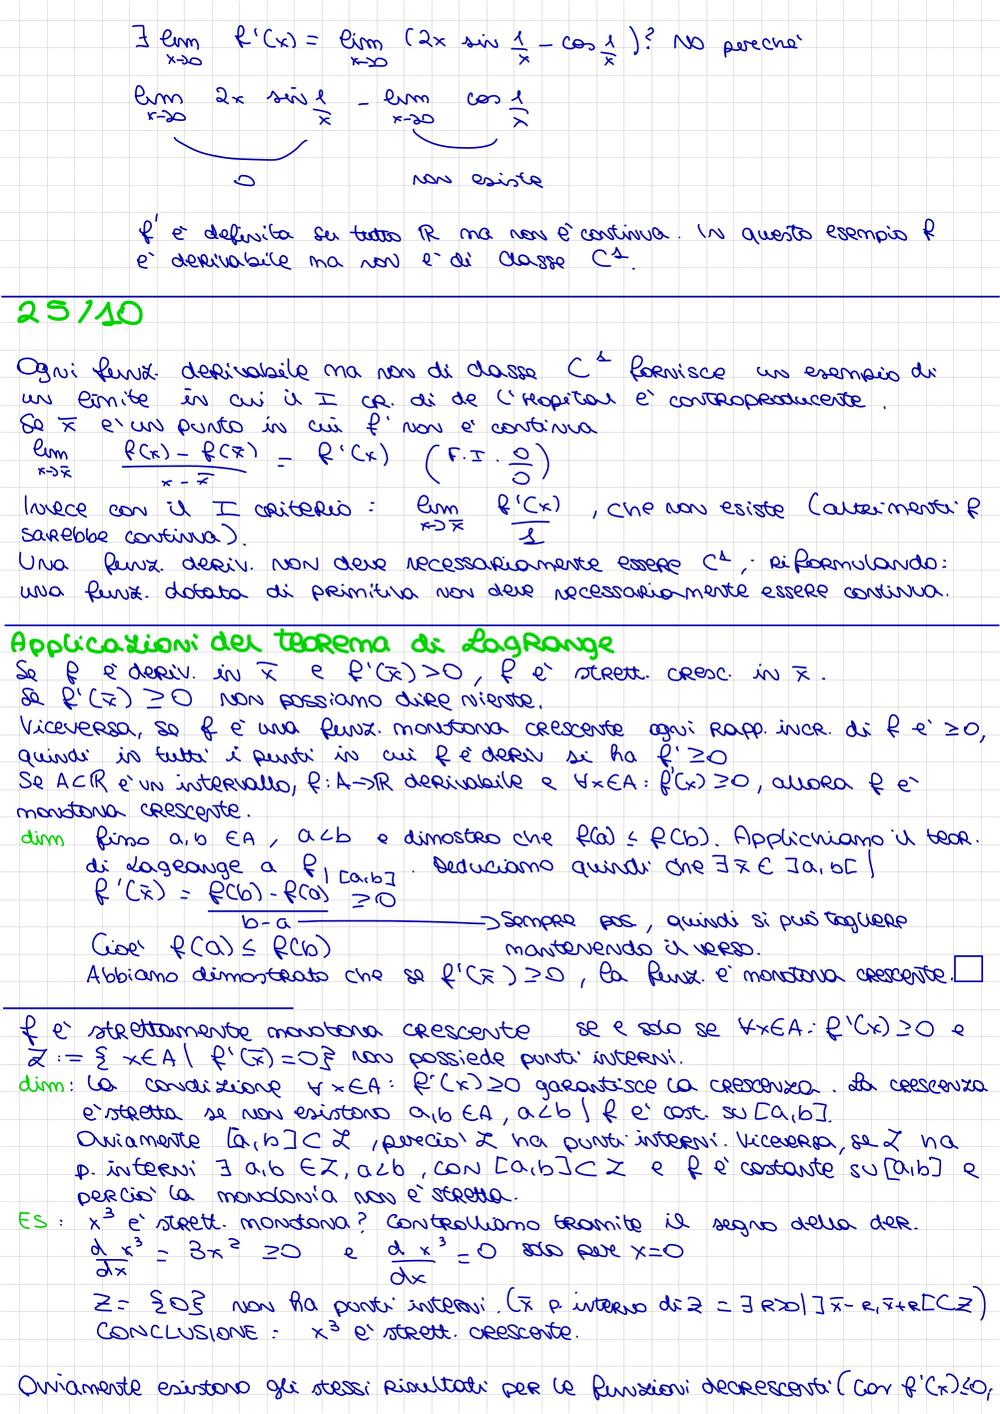 ∃ lim x→0 f'(x) = lim x→0 (2x sin 1/x - cos 1/x)? NO perché
lim x→0 2x sin 1/x - lim x→0 cos 1/x
0 non esiste
f' è definita su tutto ℝ ma non è continua. In questo esempio f
è derivabile ma non è di classe C¹.
25/10
Ogni funz. derivabile ma non di classe C¹ fornisce un esempio di
un limite in cui il I CR. di de l'Hopital è controproducente.
Se x̄ è un punto in cui f' non è continua
lim x→x̄ (f(x) - f(x̄))/(x - x̄) = f'(x) (F.I. 0/0)
Invece con il I criterio: lim x→x̄ f'(x)/1, che non esiste (altrimenti f
sarebbe continua).
Una funz. deriv. non deve necessariamente essere C¹,: riformulando:
una funz. dotata di primitiva non deve necessariamente essere continua.
Applicazioni del teorema di Lagrange
Se f è deriv. in x̄ e f'(x̄)>0, f è strett. cresc. in x̄.
Se f'(x̄) ≥0 non possiamo dire niente.
Viceversa, se f è una funz. monotona crescente ogni rapp. incr. di f è ≥0,
quindi in tutti i punti in cui f è deriv si ha f' ≥0
Se A⊂ℝ è un intervallo, f: A→ℝ derivabile e ∀x∈A: f'(x) ≥0, allora f è
monotona crescente.
dim fisso a,b ∈A, a<b e dimostro che f(a) ≤ f(b). Applichiamo il teor.
di Lagrange a f|[a,b]. Deduciamo quindi che ∃ x̄ ∈ ]a,b[ |
f'(x̄) = (f(b) - f(a))/(b-a) ≥0
→ Sempre pos, quindi si può togliere
mantenendo il verso.
Cioè f(a) ≤ f(b)
Abbiamo dimostrato che se f'(x̄) ≥0, la funz. è monotona crescente. □
f è strettamente monotona crescente se e solo se ∀x∈A: f'(x) ≥0 e
Z := { x∈A | f'(x̄) =0} non possiede punti interni.
dim: la condizione ∀x∈A: f'(x) ≥0 garantisce la crescenza. La crescenza
è stretta se non esistono a,b ∈A, a<b | f è cost. su [a,b].
Ovviamente [a,b] ⊂ Z, perciò Z ha punti interni. Viceversa, se Z ha
p. interni ∃ a,b ∈Z, a<b, con [a,b]⊂Z e f è costante su [a,b] e
perciò la monotonia non è stretta.
ES: x³ è strett. monotona? Controlliamo tramite il segno della der.
d x³/dx = 3x² ≥0 e d x³/dx =0 solo per x=0
Z= {0} non ha punti interni. (x̄ p. interno di Z = ∃ R>0 | ]x̄-R, x̄+R[ ⊂Z)
CONCLUSIONE: x³ è strett. crescente.
Ovviamente esistono gli stessi risultati per le funzioni decrescenti (con f'(x) ≤0,